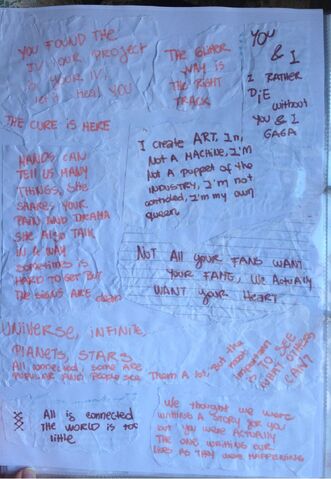 YOU FOUND THE
IV YOUR PROJECT
IS YOUR IV,
let it HEAL YOU
THE
WAY IS
THE RIGHT
TRACK
YOU
& I
I RATHER
DiE without
YOU & I
GAGA
THE CURE IS HERE
I create ART, I'm
Not A MACHINE, I'M
Not A PUPPET OF the
INDUSTRY, I'M not
controled, I'm my own
queen
HANDS CAN
TELL US MANY
THINGS, SHE
SHARES YOUR
PAIN AND DRAMA
SHE Also TALK
IN A WAY
sometimes is
HARD TO GET BUT
THE SIGNS ARE clear
Not All your FANS WANT
YOUR FAME, We Actually
WANT your HEART
UNIVERSE, INFINITE,
PLANETS, STARS
All connected, some are
POPULAR AND PEOPLE SEE THEM A lot, But the
most
important
is TO SEE
WHAT OTHERS
CAN'T
All is connected
THE WORLD IS too
little
We thought we were
WRITING A STORY FOR YOU
BUT YOU WERE ACTUALLY
THE ONE WRITING OUR
LIVES AS THEY WERE HAPPENING